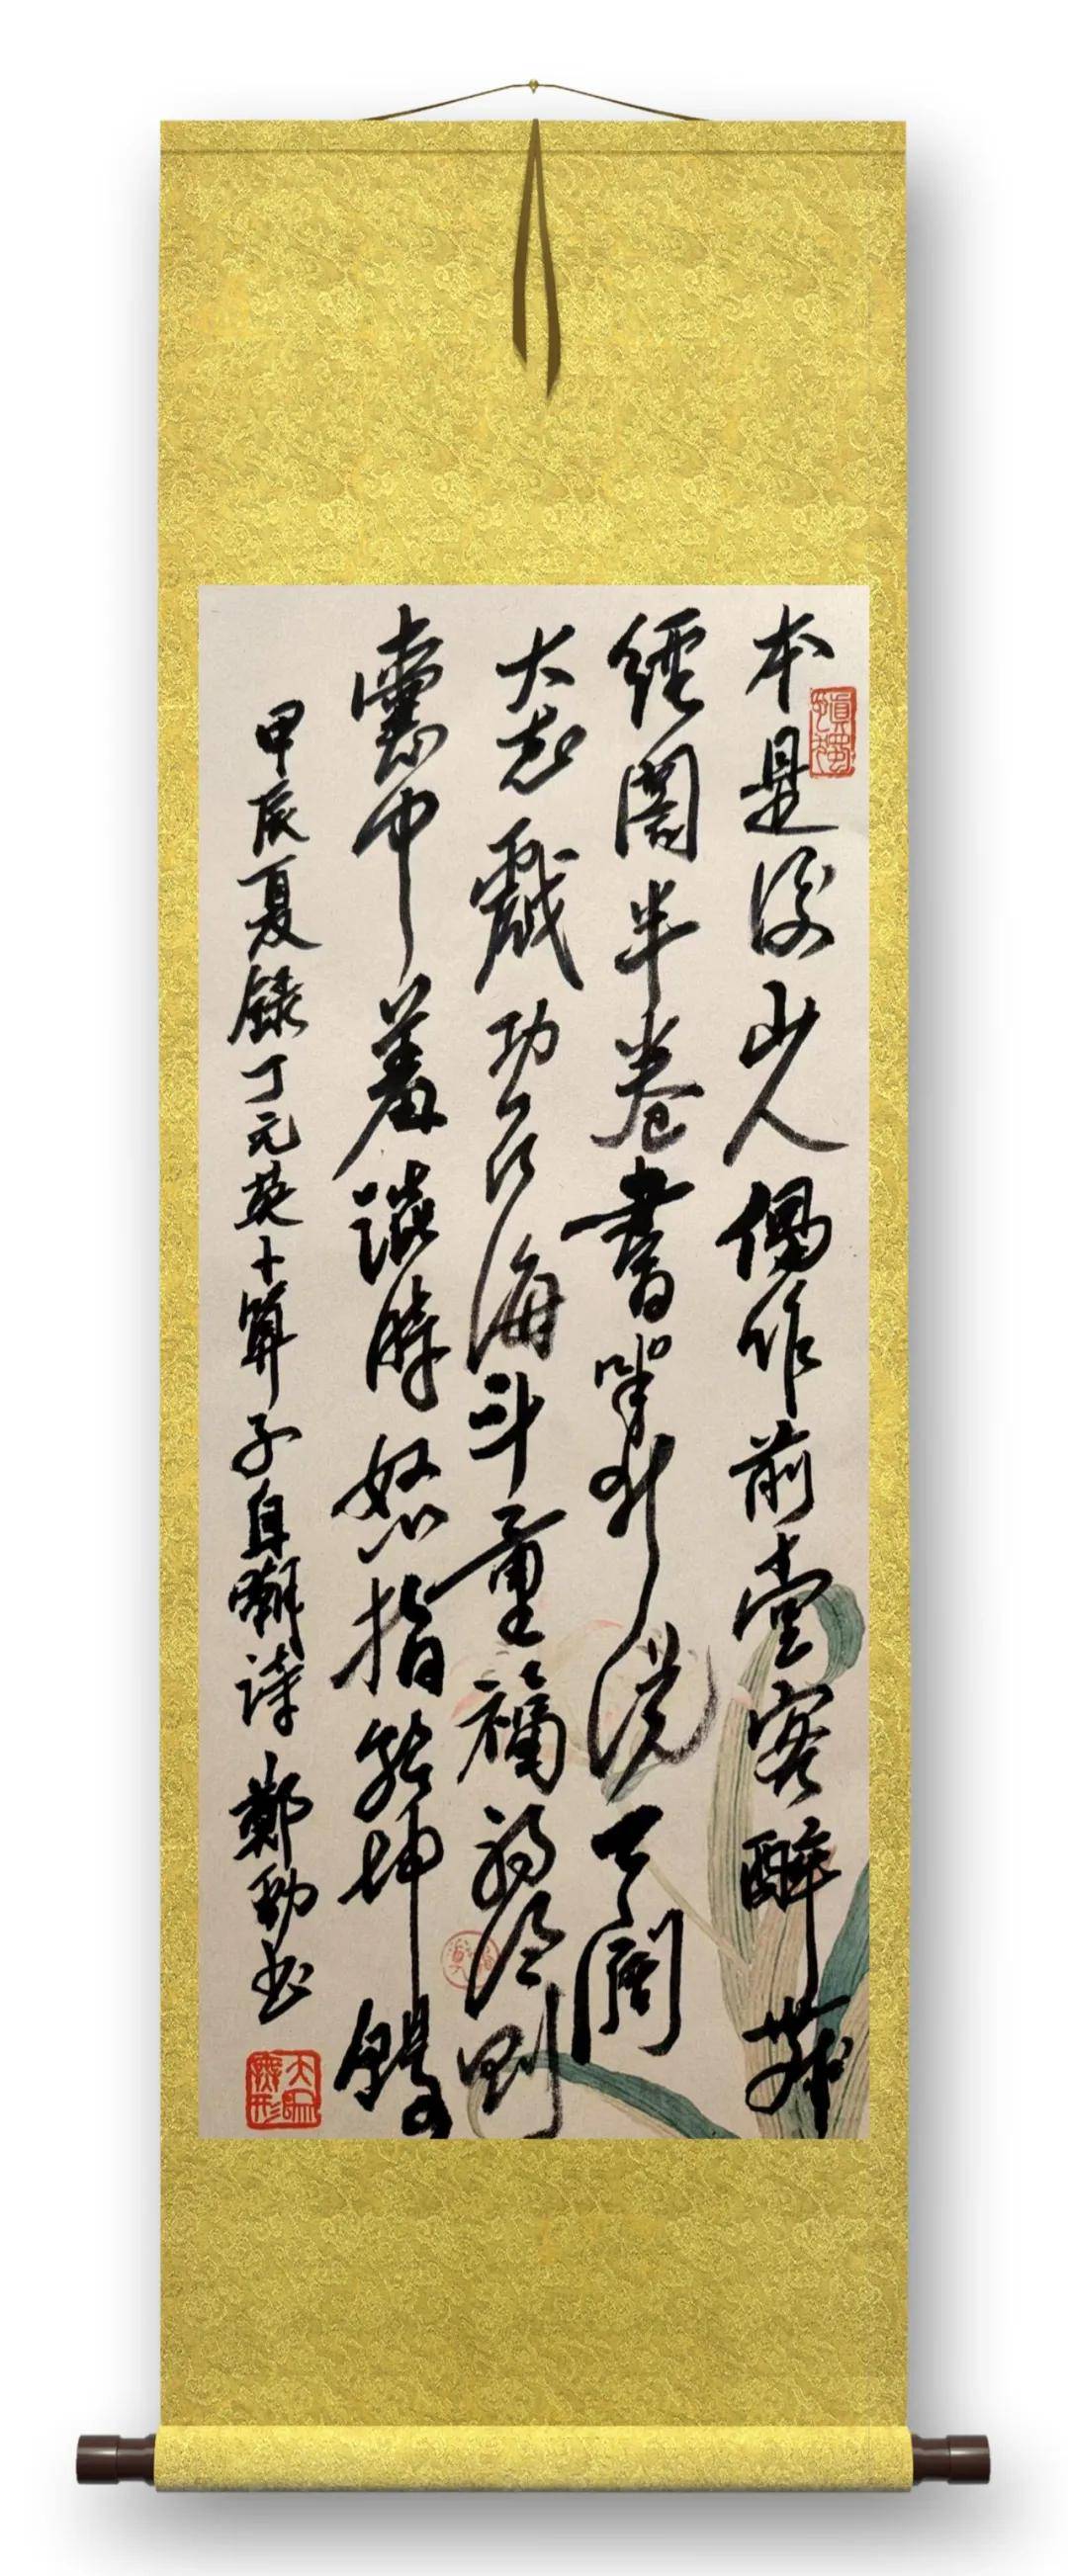 本是後山人偶作前堂客醉舞
經閣半卷書坐井説天闊
大志戲功名海斗量福禍論到
囊中羞澀時怒指乾坤錯
甲辰夏錄丁元英卜算子自嘲詩 鄭勁書
大象無形